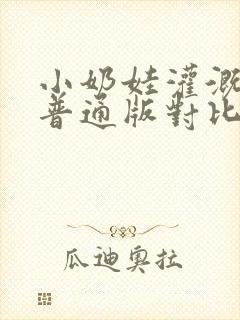 小奶娃灌溉
普通版對比
瓜迪奧拉